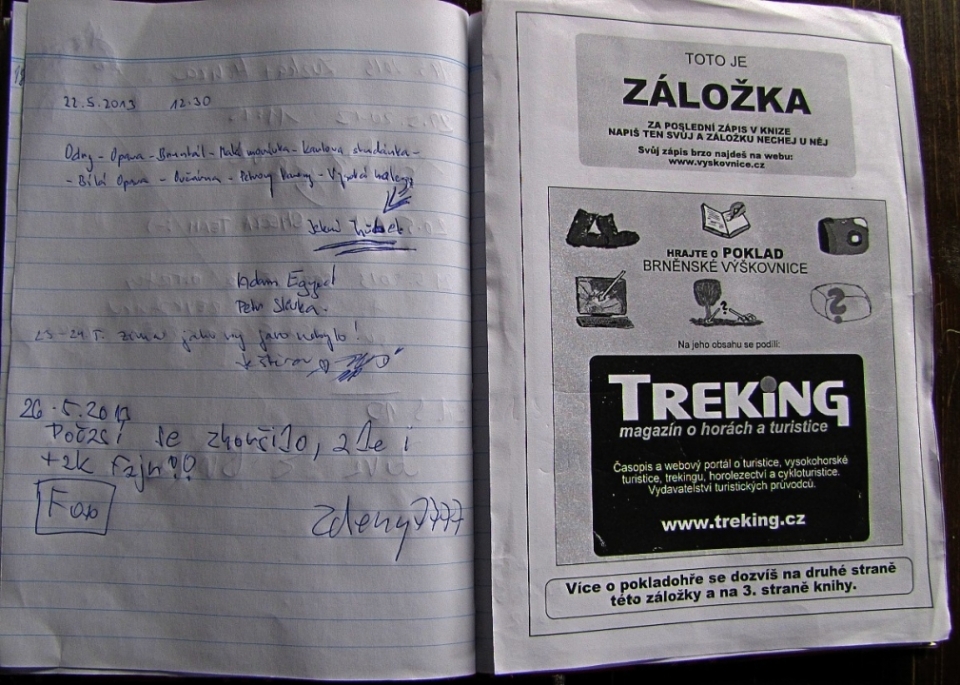 22.5.2013 12.30
Odry - Opava - Bruntál - Malá morávka - Karlova studánka -
- Bílá Opava - Ovčárna - Petrovy kameny - Vysoká hole
Adam Egypt
Petr
23-24.5. zima jako by jaro nebylo!
26.5.2013
Počasí se zhoršilo, ale i
tak fajn!!
Fox
Zdeny7777
TOTO JE
ZÁLOŽKA
ZA POSLEDNÍ ZÁPIS V KNIZE
NAPIŠ TEN SVŮJ A ZÁLOŽKU NECHEJ U NĚJ
Svůj zápis brzo najdeš na webu:
www.vyskovnice.cz
HRAJTE o POKLAD
BRNĚNSKÉ VÝŠKOVNICE
?
?
Na jeho obsahu se podílí:
TREKiNG
magazín o horách a turistice
Časopis a webový portál o turistice, vysokohorské
turistice, trekingu, horolezectví a cykloturistice.
Vydavatelství turistických průvodců.
www.treking.cz
Více o pokladohře se dozvíš na druhé straně
této záložky a na 3. straně knihy.